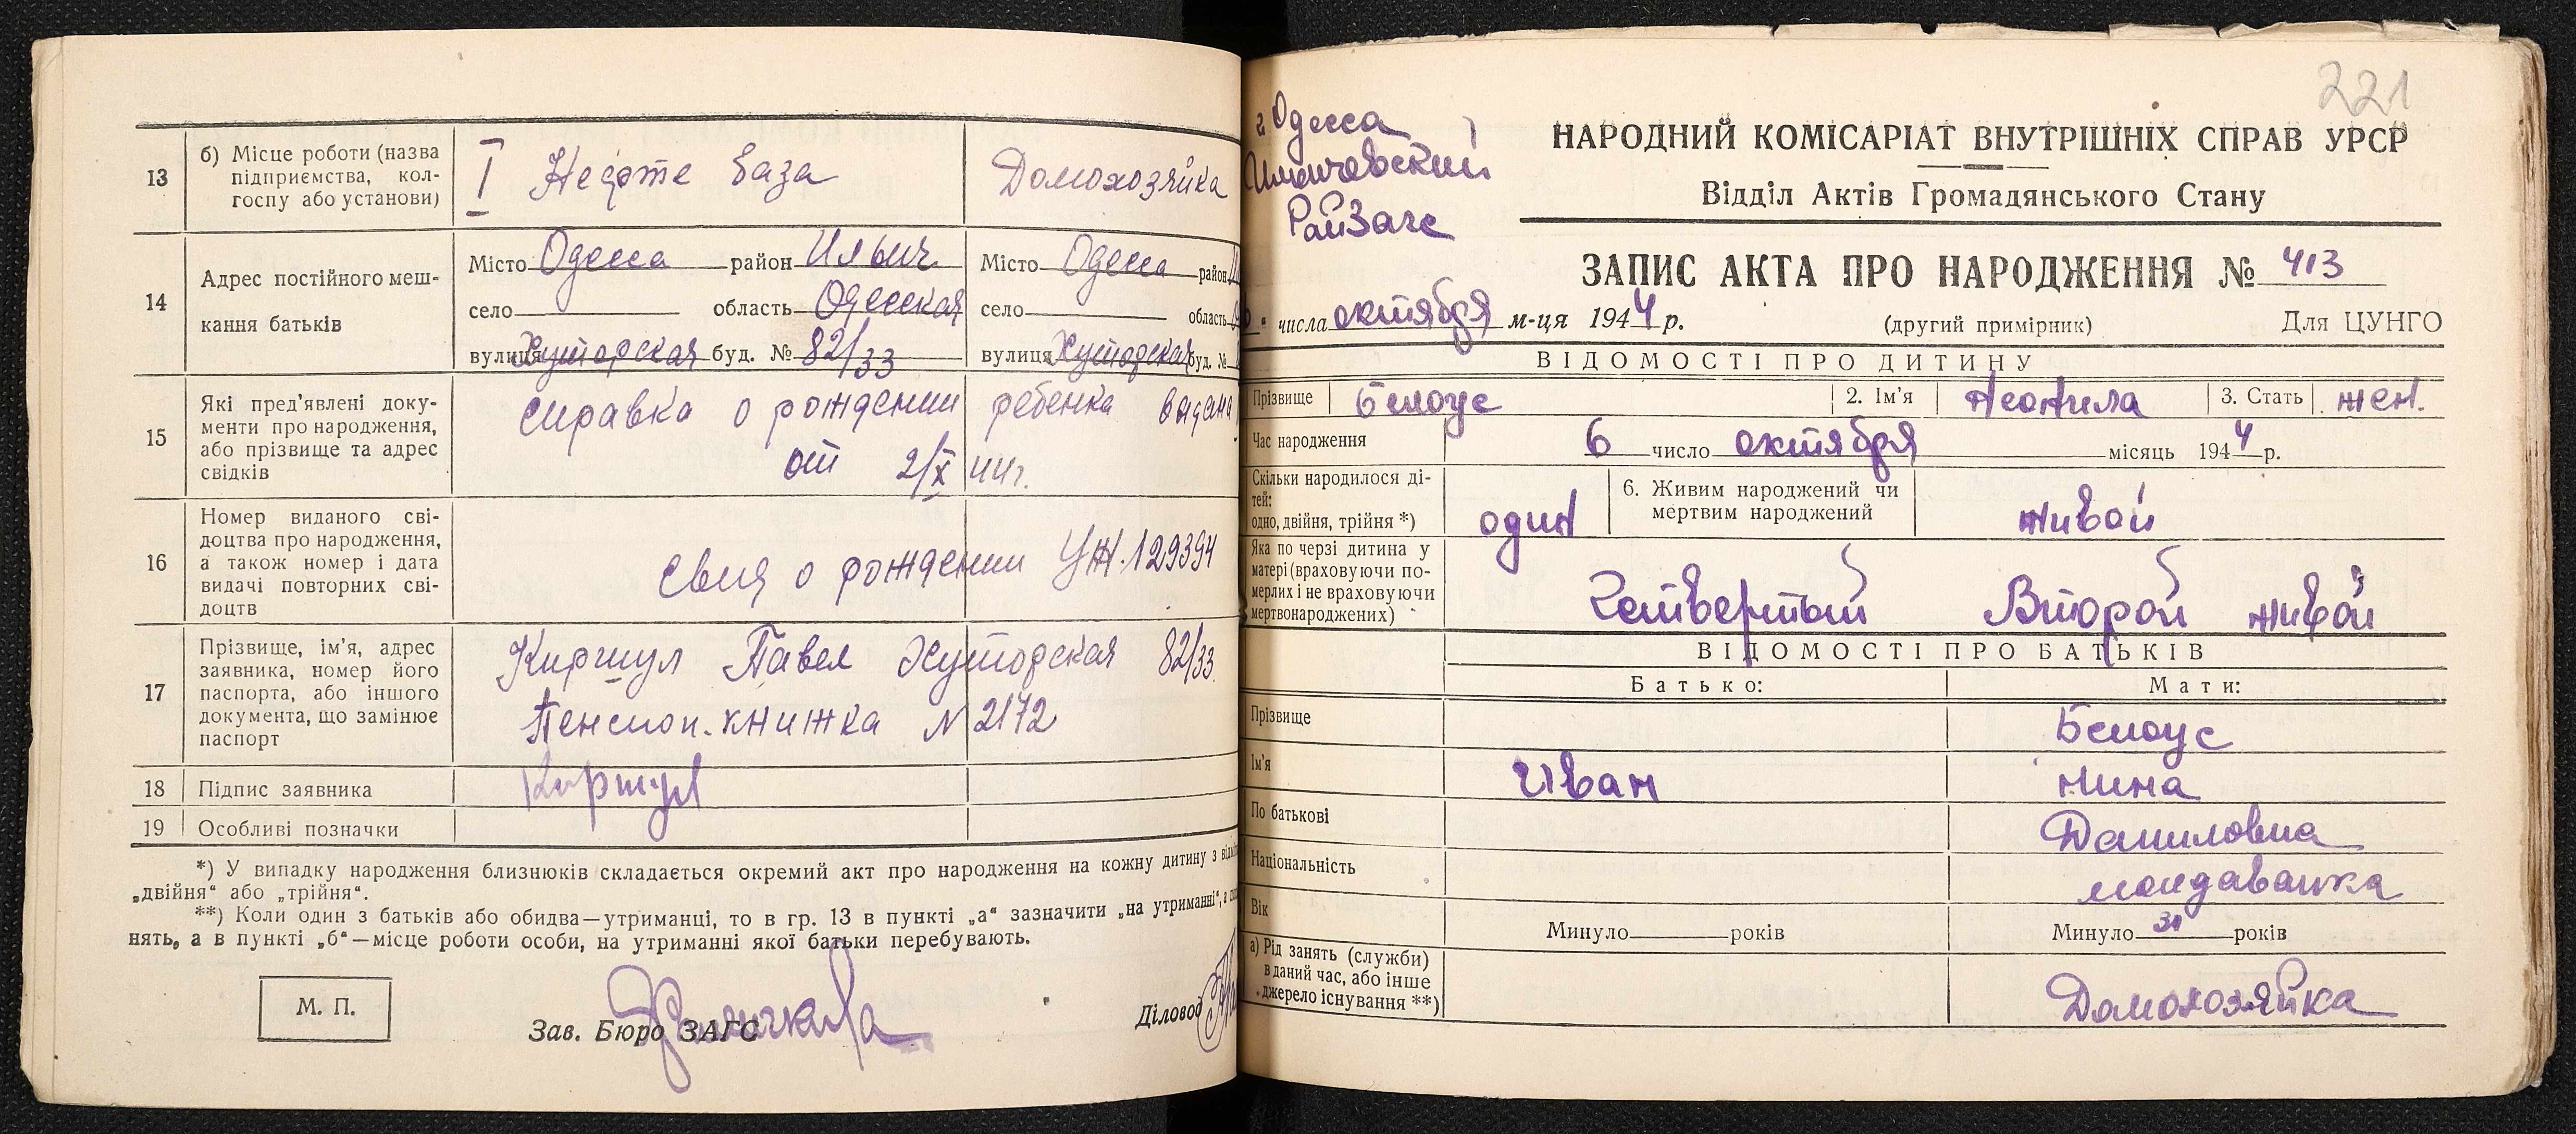 13
б) Місце роботи (назва
підприємства, кол-
госпу або установи)
I Нефте база
Домохозяйка
14
Адрес постійного меш-
кання батьків
Місто Одесса район Ильич
село область Одесская
вулиця Хуторская буд. № 82/33
Місто Одесса район
село область
вулиця Хуторская буд. №
15
Які пред'явлені доку-
менти про народження,
або прізвище та адрес
свідків
справка о рождении ребенка видана
от 2/X 44г.
16
Номер виданого сві-
доцтва про народження,
а також номер і дата
видачі повторних сві-
доцтв
о рождении УЖ.129394
17
Прізвище, ім'я, адрес
заявника, номер його
паспорта, або іншого
документа, що замінює
паспорт
Киршул Павел Хуторская 82/33
Пенсион. книжка N 2172
18
Підпис заявника
Киршул
19
Особливі позначки
*) У випадку народження близнюків складається окремий акт про народження на кожну дитину з
„двійня“ або „трійня“.
**) Коли один з батьків або обидва—утриманці, то в гр. 13 в пункті „а“ зазначити „на утриманні“, а
нять, а в пункті „б“—місце роботи особи, на утриманні якої батьки перебувають.
М. П.
Зав. Бюро ЗАГС
Діловод
221
г. Одесса
Ильичевский
РайЗагс
НАРОДНИЙ КОМІСАРІАТ ВНУТРІШНІХ СПРАВ УРСР
Відділ Актів Громадянського Стану
ЗАПИС АКТА ПРО НАРОДЖЕННЯ № 413
числа октября м-ця 1944 р.
(другий примірник)
Для ЦУНГО
ВІДОМОСТІ ПРО ДИТИНУ
Прізвище Белоус 2. Ім'я Неонила 3. Стать жен.
Час народження 6 число октября місяць 1944 р.
Скільки народилося ді-
тей:
одно, двійня, трійня *)
один
6. Живим народжений чи
мертвим народжений
живой
Яка по черзі дитина у
матері (враховуючи по-
мерлих і не враховуючи
мертвонароджених)
Четвертый Второй живой
ВІДОМОСТІ ПРО БАТЬКІВ
Батько: Мати:
Прізвище Белоус
Ім'я Иван Нина
По батькові Даниловна
Національність молдаванка
Вік Минуло років Минуло 31 років
а) Рід занять (служби)
в даний час, або інше
джерело існування **)
Домохозяйка